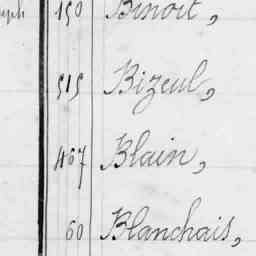 150 Benoit,
515 Bizeul,
467 Blain,
60 Blanchais,